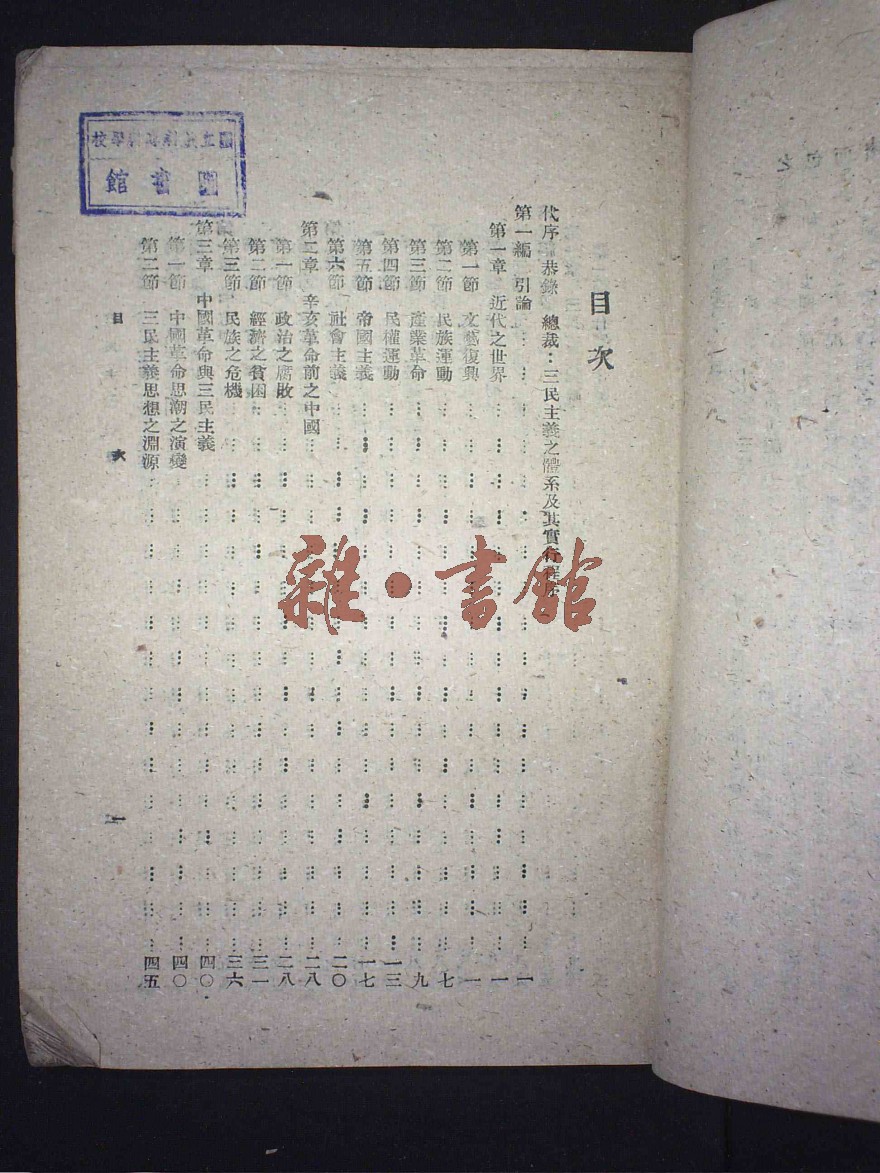 目次
代序 恭錄 總裁：三民主義之體系及其實行程序
第一編 引論 一
第一章 近代之世界 一
第一節 文藝復興 一
第二節 民族運動 七
第三節 產業革命 九
第四節 民權運動 一三
第五節 帝國主義 一七
第六節 社會主義 二〇
第二章 辛亥革命前之中國 二八
第一節 政治之腐敗 二八
第二節 經濟之貧困 三一
第三節 民族之危機 三六
第三章 中國革命與三民主義 四〇
第一節 中國革命思潮之演變 四〇
第二節 三民主義思想之淵源 四五
目次 一
校學
館書圖
雜·書館